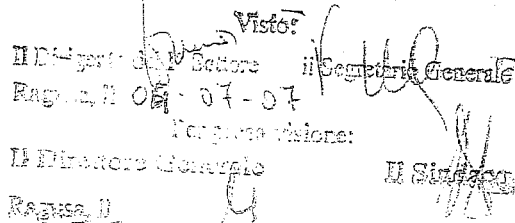 Visto:
Il Dirigente del Settore il Segretario Generale
Ragusa, Il 04-07-07
Per presa visione:
Il Direttore Generale Il Sindaco
Ragusa, Il